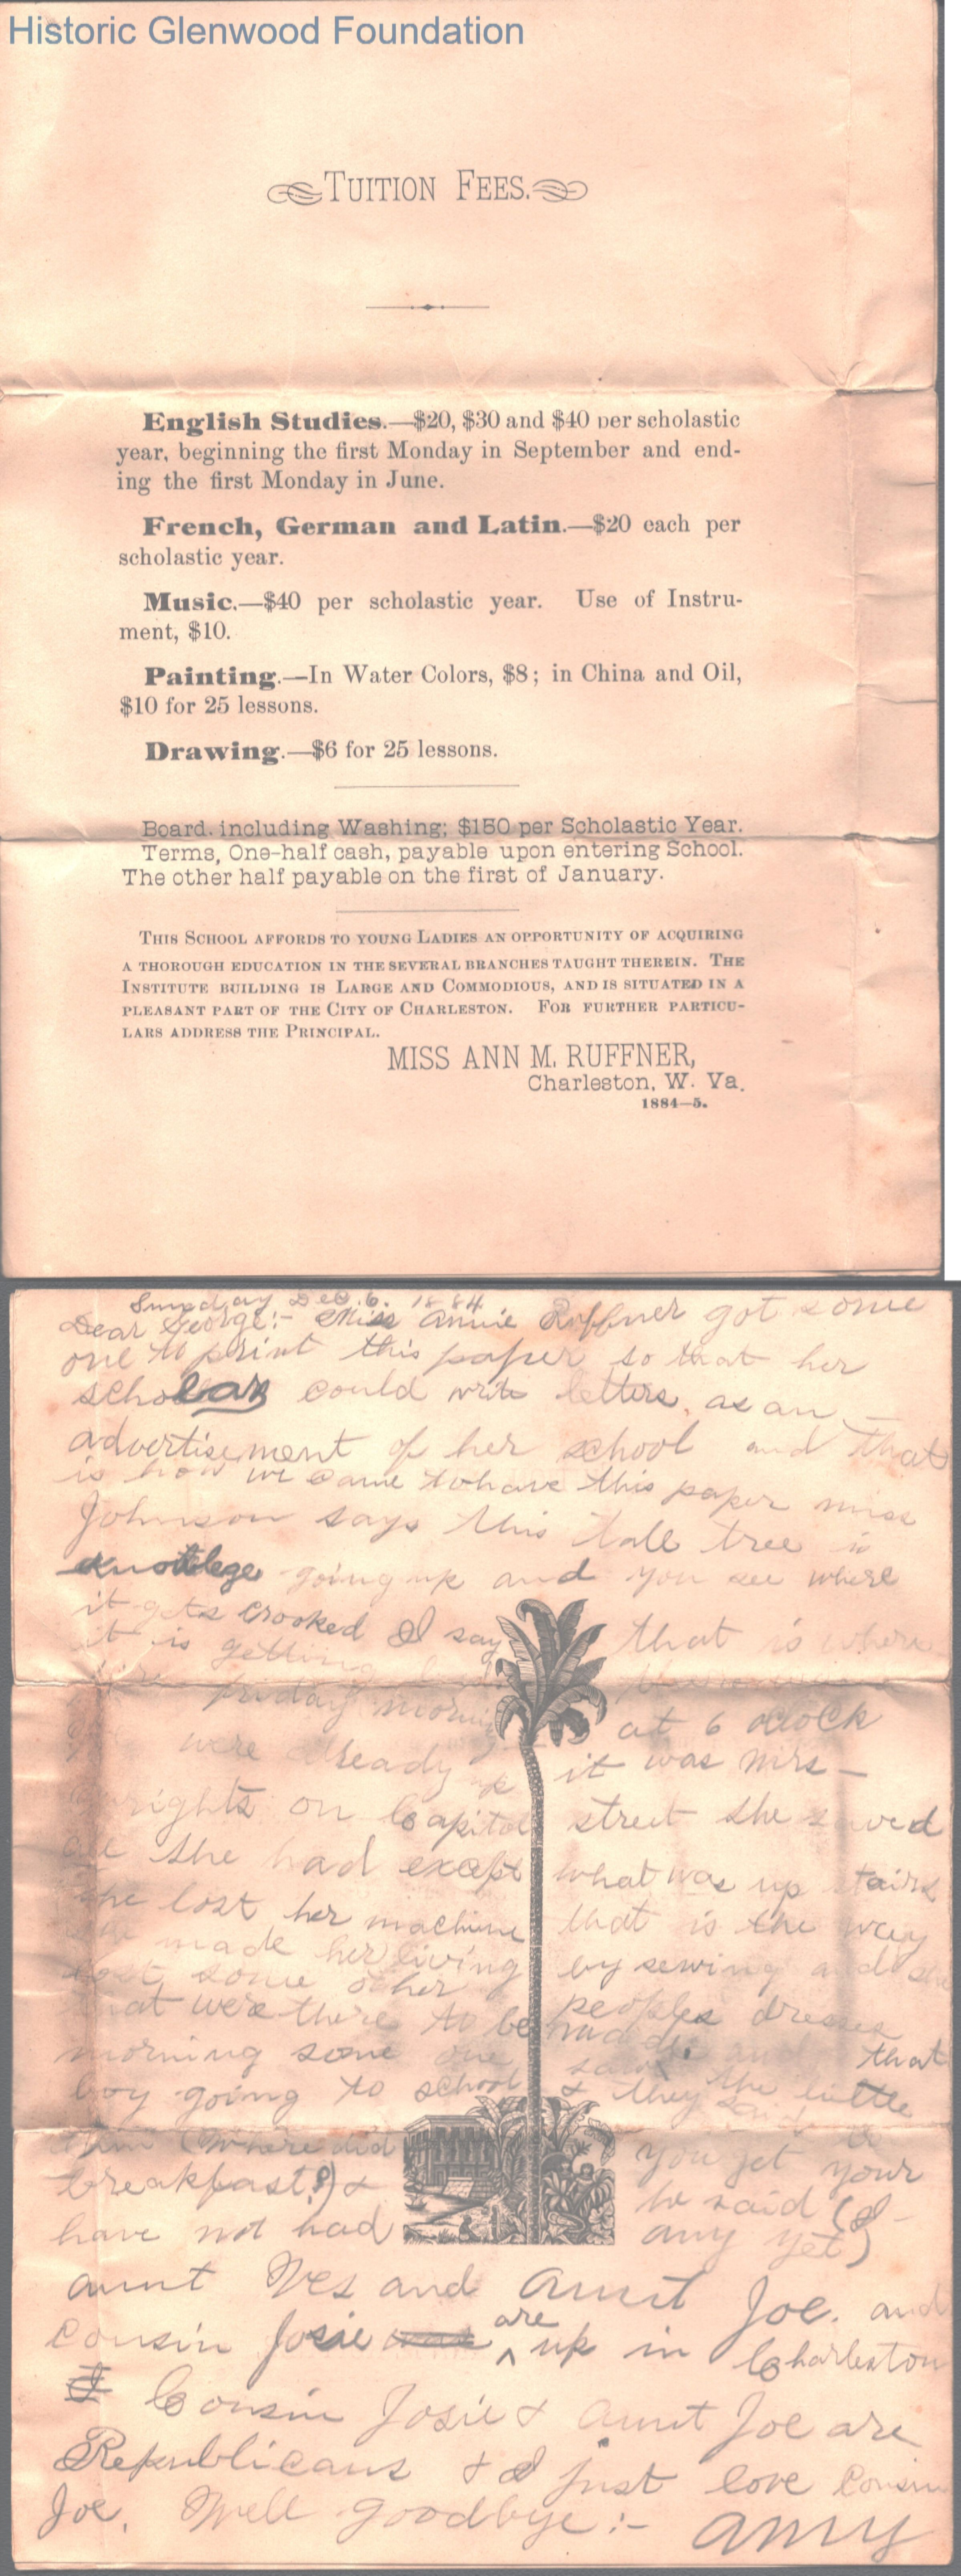 Historic Glenwood Foundation
TUITION FEES.
English Studies.—$20, $30 and $40 per scholastic
year, beginning the first Monday in September and end-
ing the first Monday in June.
French, German and Latin.—$20 each per
scholastic year.
Music.—$40 per scholastic year. Use of Instru-
ment, $10.
Painting.—In Water Colors, $8; in China and Oil,
$10 for 25 lessons.
Drawing.—$6 for 25 lessons.
Board, including Washing; $150 per Scholastic Year.
Terms, One-half cash, payable upon entering School.
The other half payable on the first of January.
THIS SCHOOL AFFORDS TO YOUNG LADIES AN OPPORTUNITY OF ACQUIRING
A THOROUGH EDUCATION IN THE SEVERAL BRANCHES TAUGHT THEREIN. THE
INSTITUTE BUILDING IS LARGE AND COMMODIOUS, AND IS SITUATED IN A
PLEASANT PART OF THE CITY OF CHARLESTON. FOR FURTHER PARTICU-
LARS ADDRESS THE PRINCIPAL.
MISS ANN M. RUFFNER,
Charleston, W. Va.
1884—5.
Sunday Dec. 6. 1884
Dear George:- Miss Annie Ruffner got some
one to print this paper so that her
scholars could write letters, as an
advertisement of her school and that
is how we came to have this paper miss
Johnson says this tall tree is
going up and you see where
it gets crooked I say that is where
it is getting
friday morning at 6 oclock
were already up it was Mrs—
rights on Capitol street she saved
all she had except what was up stairs
she lost her machine that is the way
she made her living by sewing and she
lost some other peoples dresses
that were there to be made, and that
morning some one saw the little
boy going to school & they said to
him (where did you get your
breakfast?) & he said (I
have not had any yet)
aunt Ves and aunt Joe. and
cousin Josie are up in Charleston
Cousin Josie & Aunt Joe are
Republicans & I just love Cousin
Joe. Well goodbye:- Amy